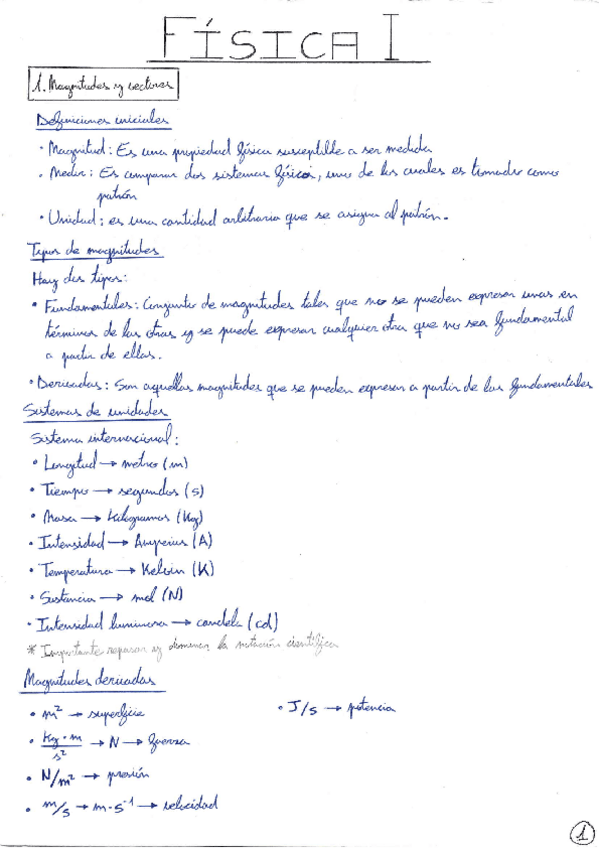 FÍSICA I
1. Magnitudes y vectores
Definiciones iniciales
· Magnitud: Es una propiedad física susceptible a ser medida
· Medir: Es comparar dos sistemas físicos, uno de los cuales es tomado como
patrón
· Unidad: es una cantidad arbitraria que se asigna al patrón.
Tipos de magnitudes
Hay dos tipos:
· Fundamentales: Conjunto de magnitudes tales que no se pueden expresar unas en
términos de las otras y se puede expresar cualquier otra que no sea fundamental
a partir de ellas.
· Derivadas: Son aquellas magnitudes que se pueden expresar a partir de las fundamentales
Sistemas de unidades
Sistema internacional:
· Longitud → metro (m)
· Tiempo → segundos (s)
· Masa → Kilogramos (Kg)
· Intensidad → Amperius (A)
· Temperatura → Kelvin (K)
· Sustancia → mol (N)
· Intensidad luminosa → candela (cd)
* Importante repasar y dominar la notación científica
Magnitudes derivadas
· m² → superficie
· J/s → potencia
· Kg·m/s² → N → fuerza
· N/m² → presión
· m/s → m·s⁻¹ → velocidad
1